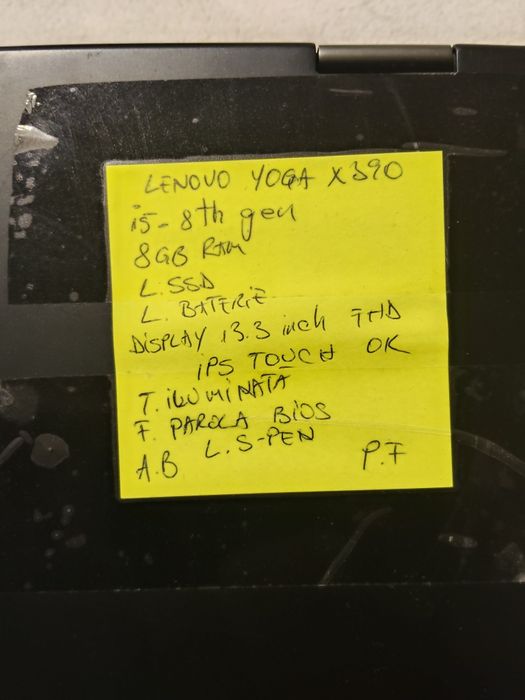 LENOVO YOGA X390
i5-8th gen
8GB RAM
L.SSD
L. BATERIE
DISPLAY 13.3 inch FHD
IPS TOUCH OK
T. ILUMINATA
F. PAROLA BIOS
L. S-PEN
A.B P.F